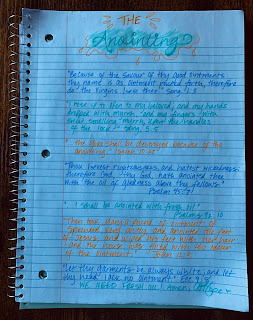 THE
Anointing
"Because of the savour of thy good ointments
thy name is as ointment poured forth, therefore
do the virgins love thee." Song 1:3
"I rose up to open to my beloved, and my hands
dropped with myrrh, and my fingers with
sweet smelling myrrh, upon the handles
of the lock." Song 5:5
"... the yoke shall be destroyed because of the
anointing." Isaiah 10:27
"Thou lovest righteousness, and hatest wickedness:
therefore God, thy God, hath anointed thee
with the oil of gladness above thy fellows."
Psalm 45:7
"... I shall be anointed with fresh oil."
Psalm 92:10
"Then took Mary a pound of ointment of
spikenard, very costly, and anointed the feet
of Jesus, and wiped his feet with her hair:
and the house was filled with the odour
of the ointment." John 12:3
"Let thy garments be always white; and let
thy head lack no ointment." Ecc. 9:8
WE NEED FRESH OIL! Amen.